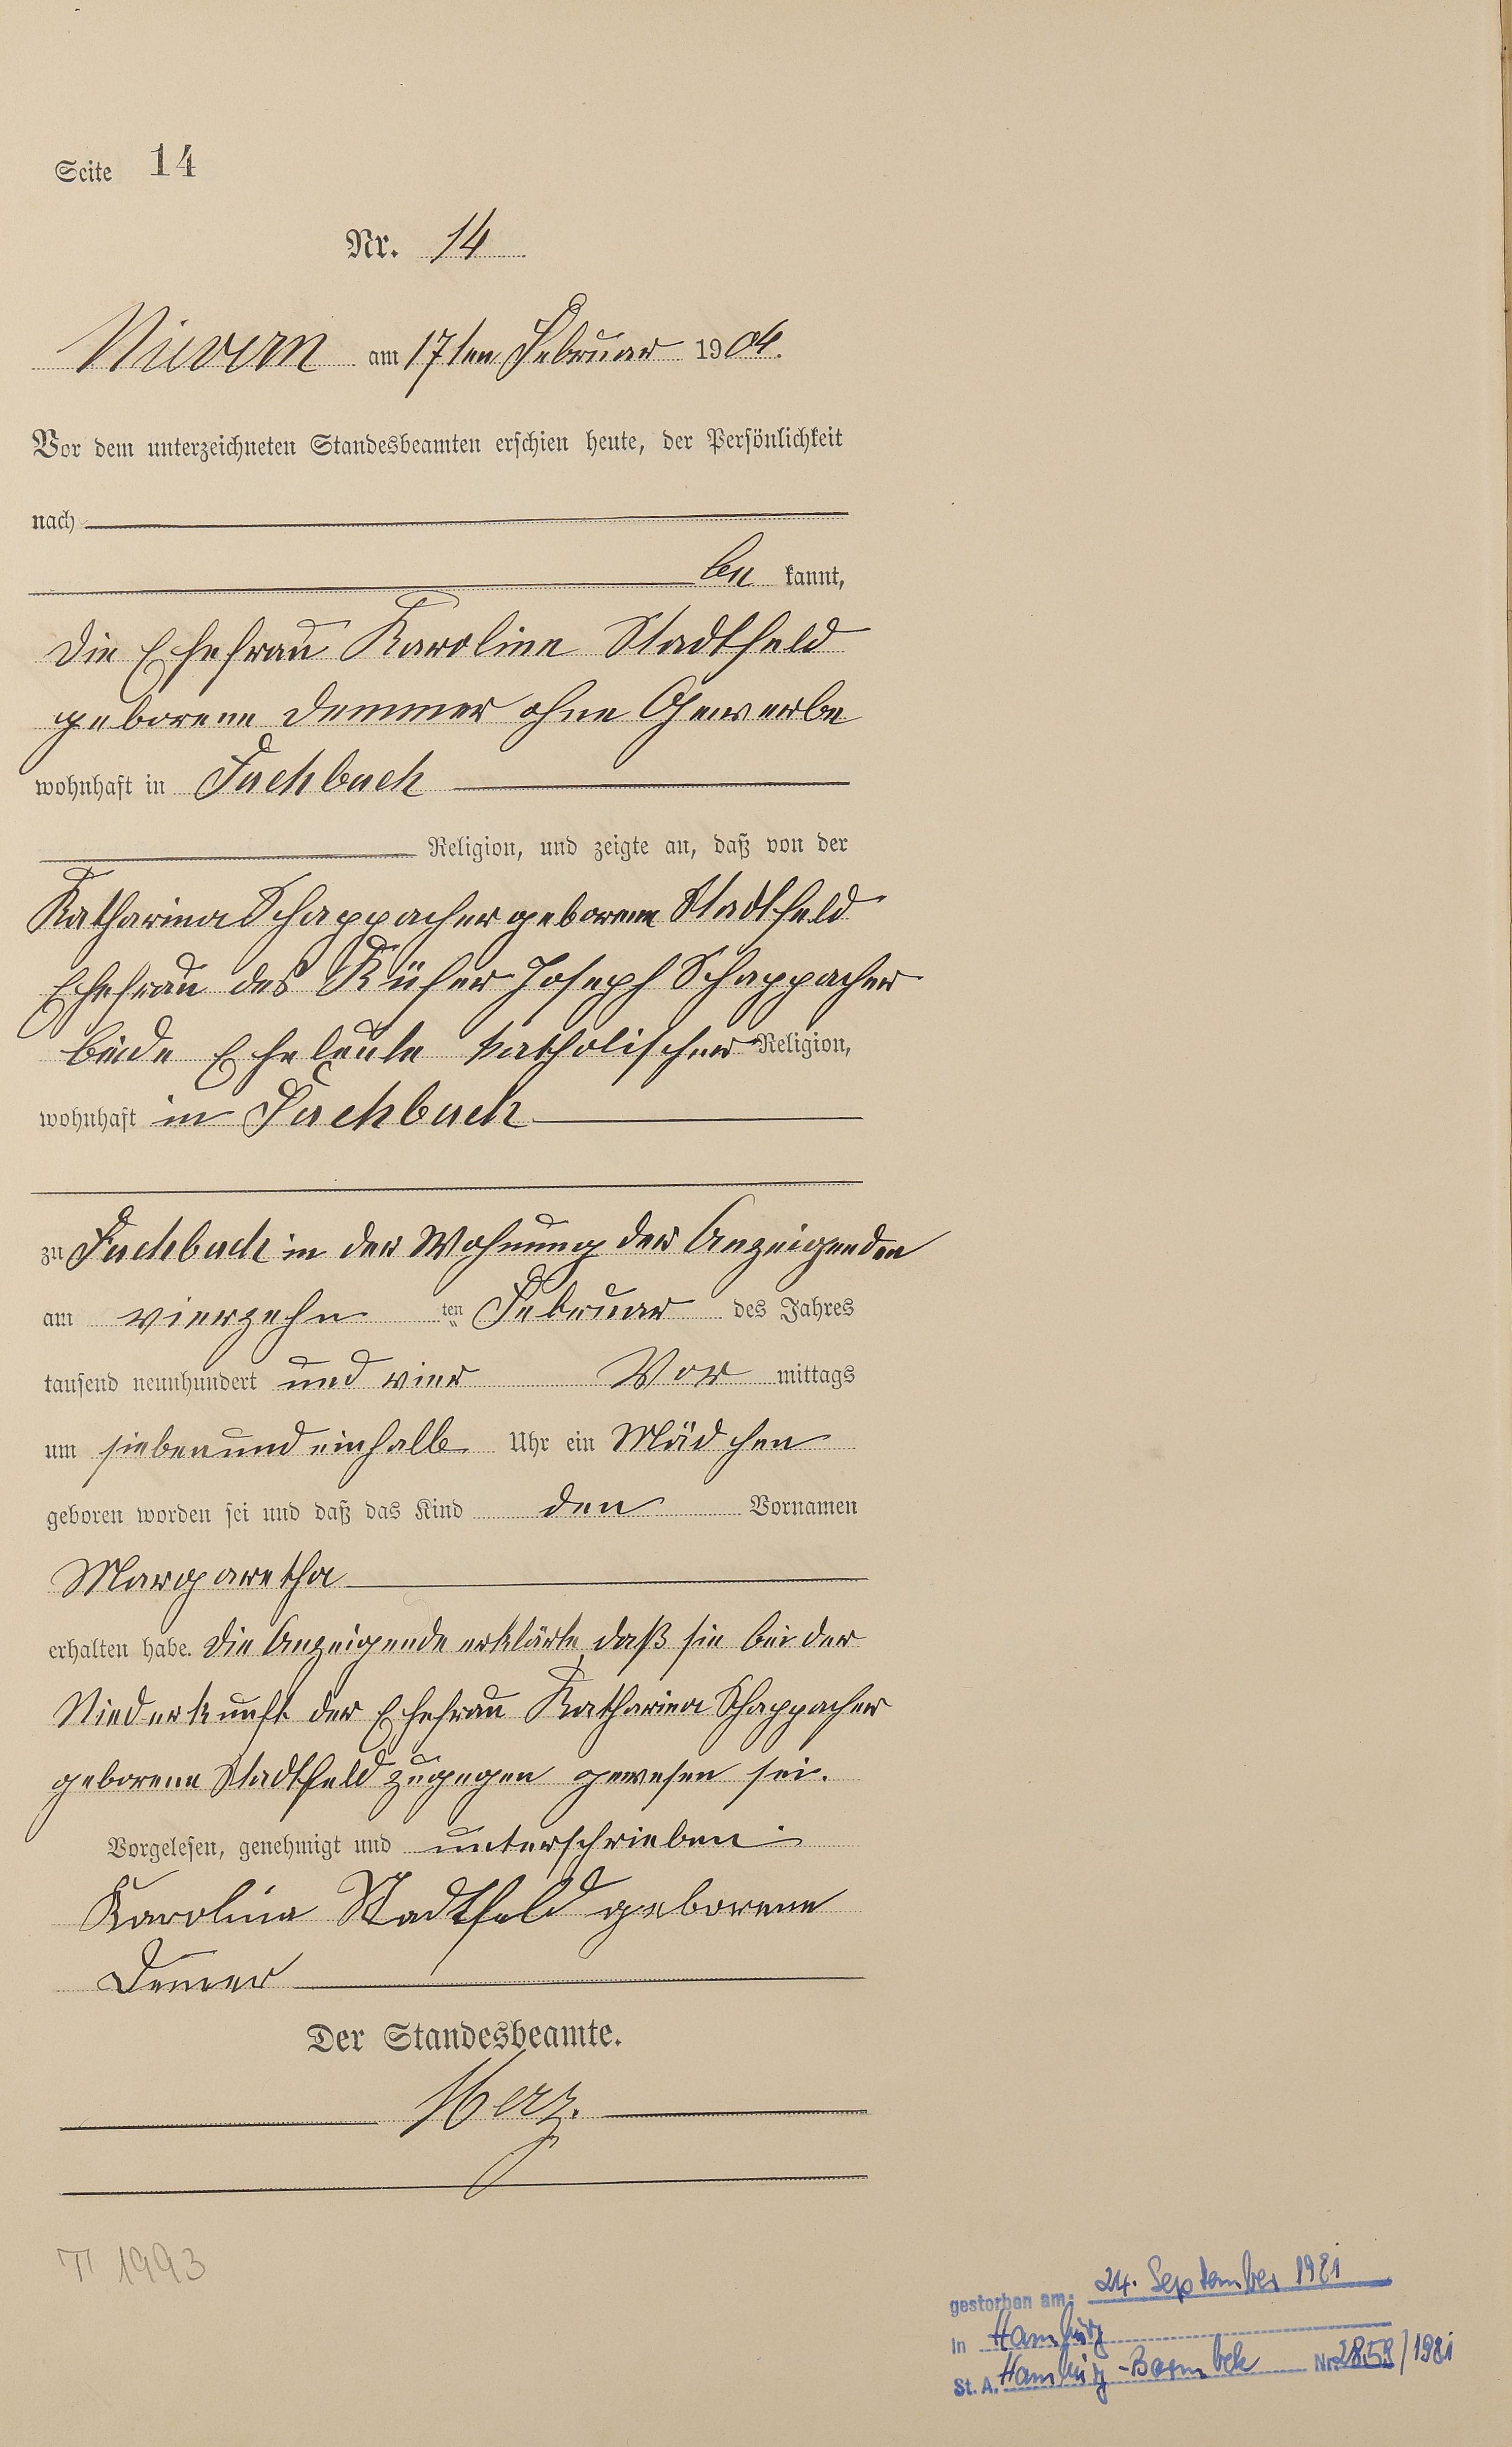 Seite 14
Nr. 14
Nievern am 17ten Februar 1904.
Vor dem unterzeichneten Standesbeamten erschien heute, der Persönlichkeit
nach
be kannt,
die Ehefrau Karoline Stadtfeld
geborene Demmer ohne Gewerbe
wohnhaft in Fachbach
Religion, und zeigte an, daß von der
Katharina Schappacher geborene Stadtfeld
Ehefrau des Küfer Joseph Schappacher
beide Eheleute katholischer Religion,
wohnhaft in Fachbach
zu Fachbach in der Wohnung der Anzeigenden
am vierzehn ten Februar des Jahres
tausend neunhundert und vier Vor mittags
um siebenundeinhalb Uhr ein Mädchen
geboren worden sei und daß das Kind den Vornamen
Margaretha
erhalten habe. Die Anzeigende erklärte, daß sie bei der
Niederkunft der Ehefrau Katharina Schappacher
geborene Stadtfeld zugegen gewesen sei.
Vorgelesen, genehmigt und unterschrieben:
Karolina Stadtfeld geborene
Demer
Der Standesbeamte.
Herz.
T 1993
gestorben am: 24. September 1981
in Hamburg
St. A. Hamburg-Barmbek Nr. 2859/1981